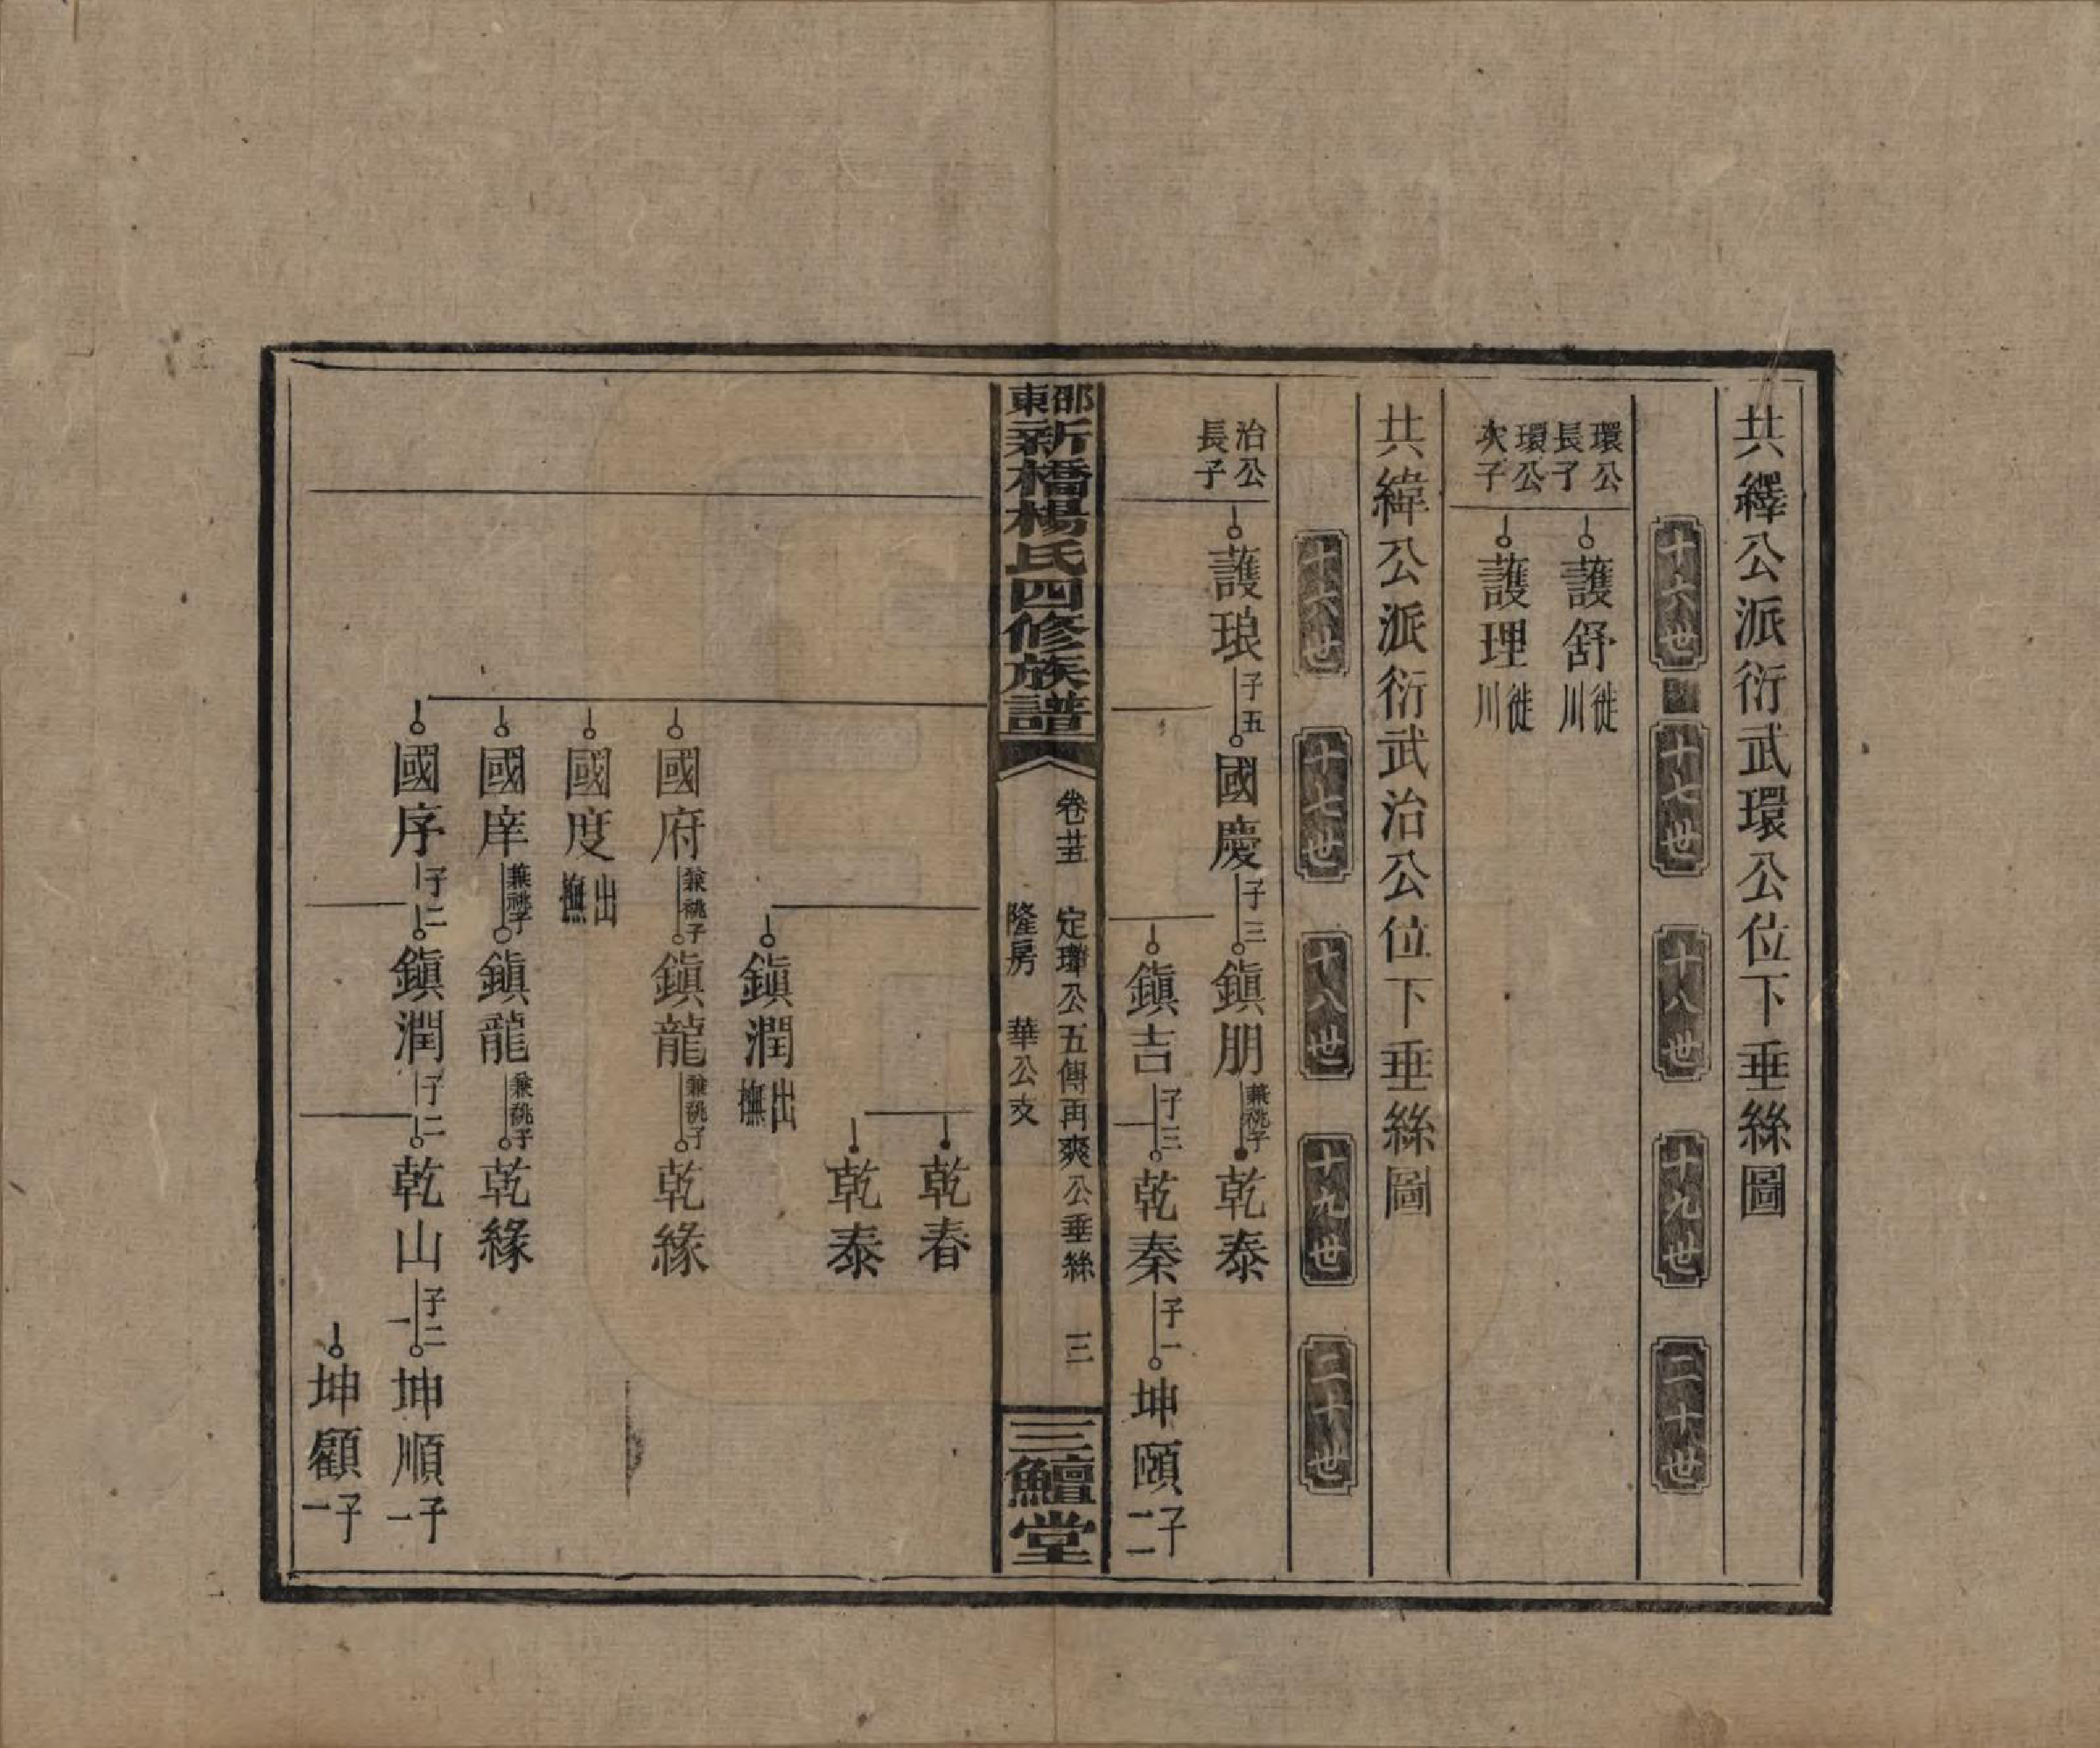 共繹公派衍武環公位下垂絲圖
十六世 十七世 十八世 十九世 二十世
環公長子 護舒 徙川
環公次子 護理 徙川
共緯公派衍武治公位下垂絲圖
十六世 十七世 十八世 十九世 二十世
治公長子 護琅 子五 國慶 子三 鎮朋 兼祧子 乾泰
鎮吉 子三 乾秦 子一 坤頤 子二一
邵東新橋楊氏四修族譜 卷廿五 定璣公五傳再爽公垂絲 三 隆房 華公支 三鱣堂
乾春
乾泰
鎮潤 出撫
國府 兼祧子 鎮龍 兼祧子 乾緣
國度 出撫
國庠 兼祧子 鎮龍 兼祧子 乾緣
國序 子二 鎮潤 子二 乾山 子二一 坤順 子一
坤顧 子一